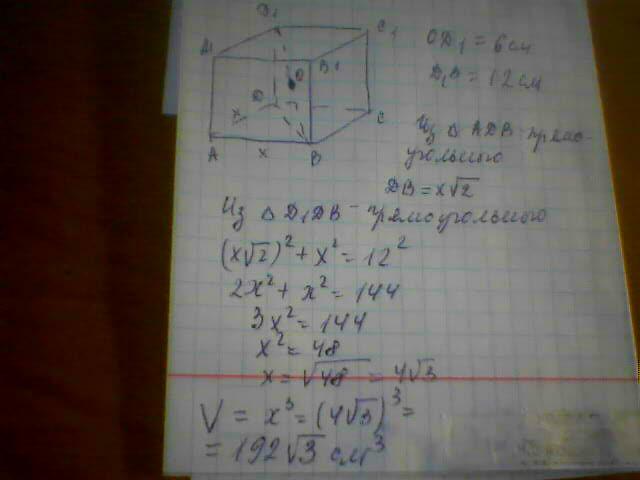 D₁
C₁
A₁
B₁
O
D
x
C
A
x
B
OD₁ = 6 см
D₁B = 12 см
Из △ ADB - прямо-
угольного
DB = x√2
Из △ D₁DB - прямоугольного
(x√2)² + x² = 12²
2x² + x² = 144
3x² = 144
x² = 48
x = √48 = 4√3
V = x³ = (4√3)³ =
= 192√3 см³